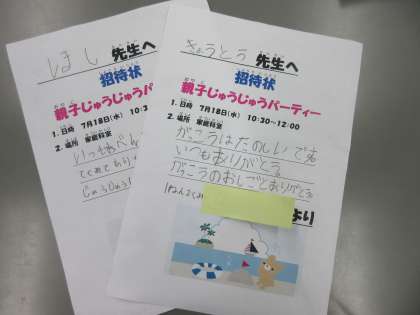 ほし 先生へ
招待状
親子じゅうじゅうパ
1. 日時 7月18日(水) 10:3
2. 場所 家庭科室
きょうとう 先生へ
招待状
親子じゅうじゅうパーティー
1. 日時 7月18日(水) 10:30~12:00
2. 場所 家庭科室
がっこうはたのしいです。
いつもありがとう。
がっこうのおしごとありがとう。
より